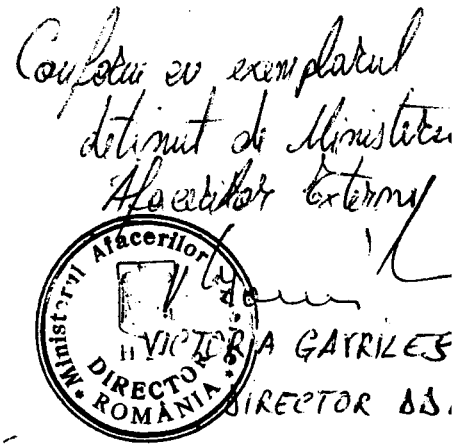 Conform cu exemplarul
detinut de Ministeru
Afacerilor Externe
Ministerul Afacerilor
DIRECTOR
ROMÂNIA
VICTORIA GAVRILES
DIRECTOR